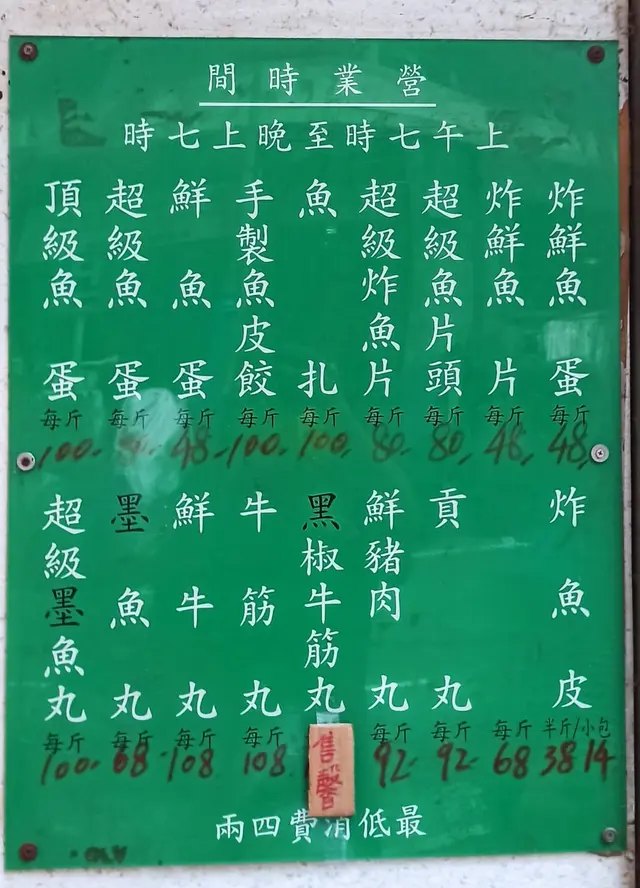 營業時間
上午七時至晚上七時
炸鮮魚蛋 每斤 48
炸鮮魚片 每斤 48
超級魚片頭 每斤 80
超級炸魚片 每斤 80
魚扎 每斤 100
手製魚皮餃 每斤 100
鮮魚蛋 每斤 48
超級魚蛋 每斤 80
頂級魚蛋 每斤 100
炸魚皮 半斤/小包 38 14
每斤 68
貢丸 每斤 92
鮮豬肉丸 每斤 92
黑椒牛筋丸 售罄
牛筋丸 每斤 108
鮮牛丸 每斤 108
墨魚丸 每斤 68
超級墨魚丸 每斤 100
最低消費四兩